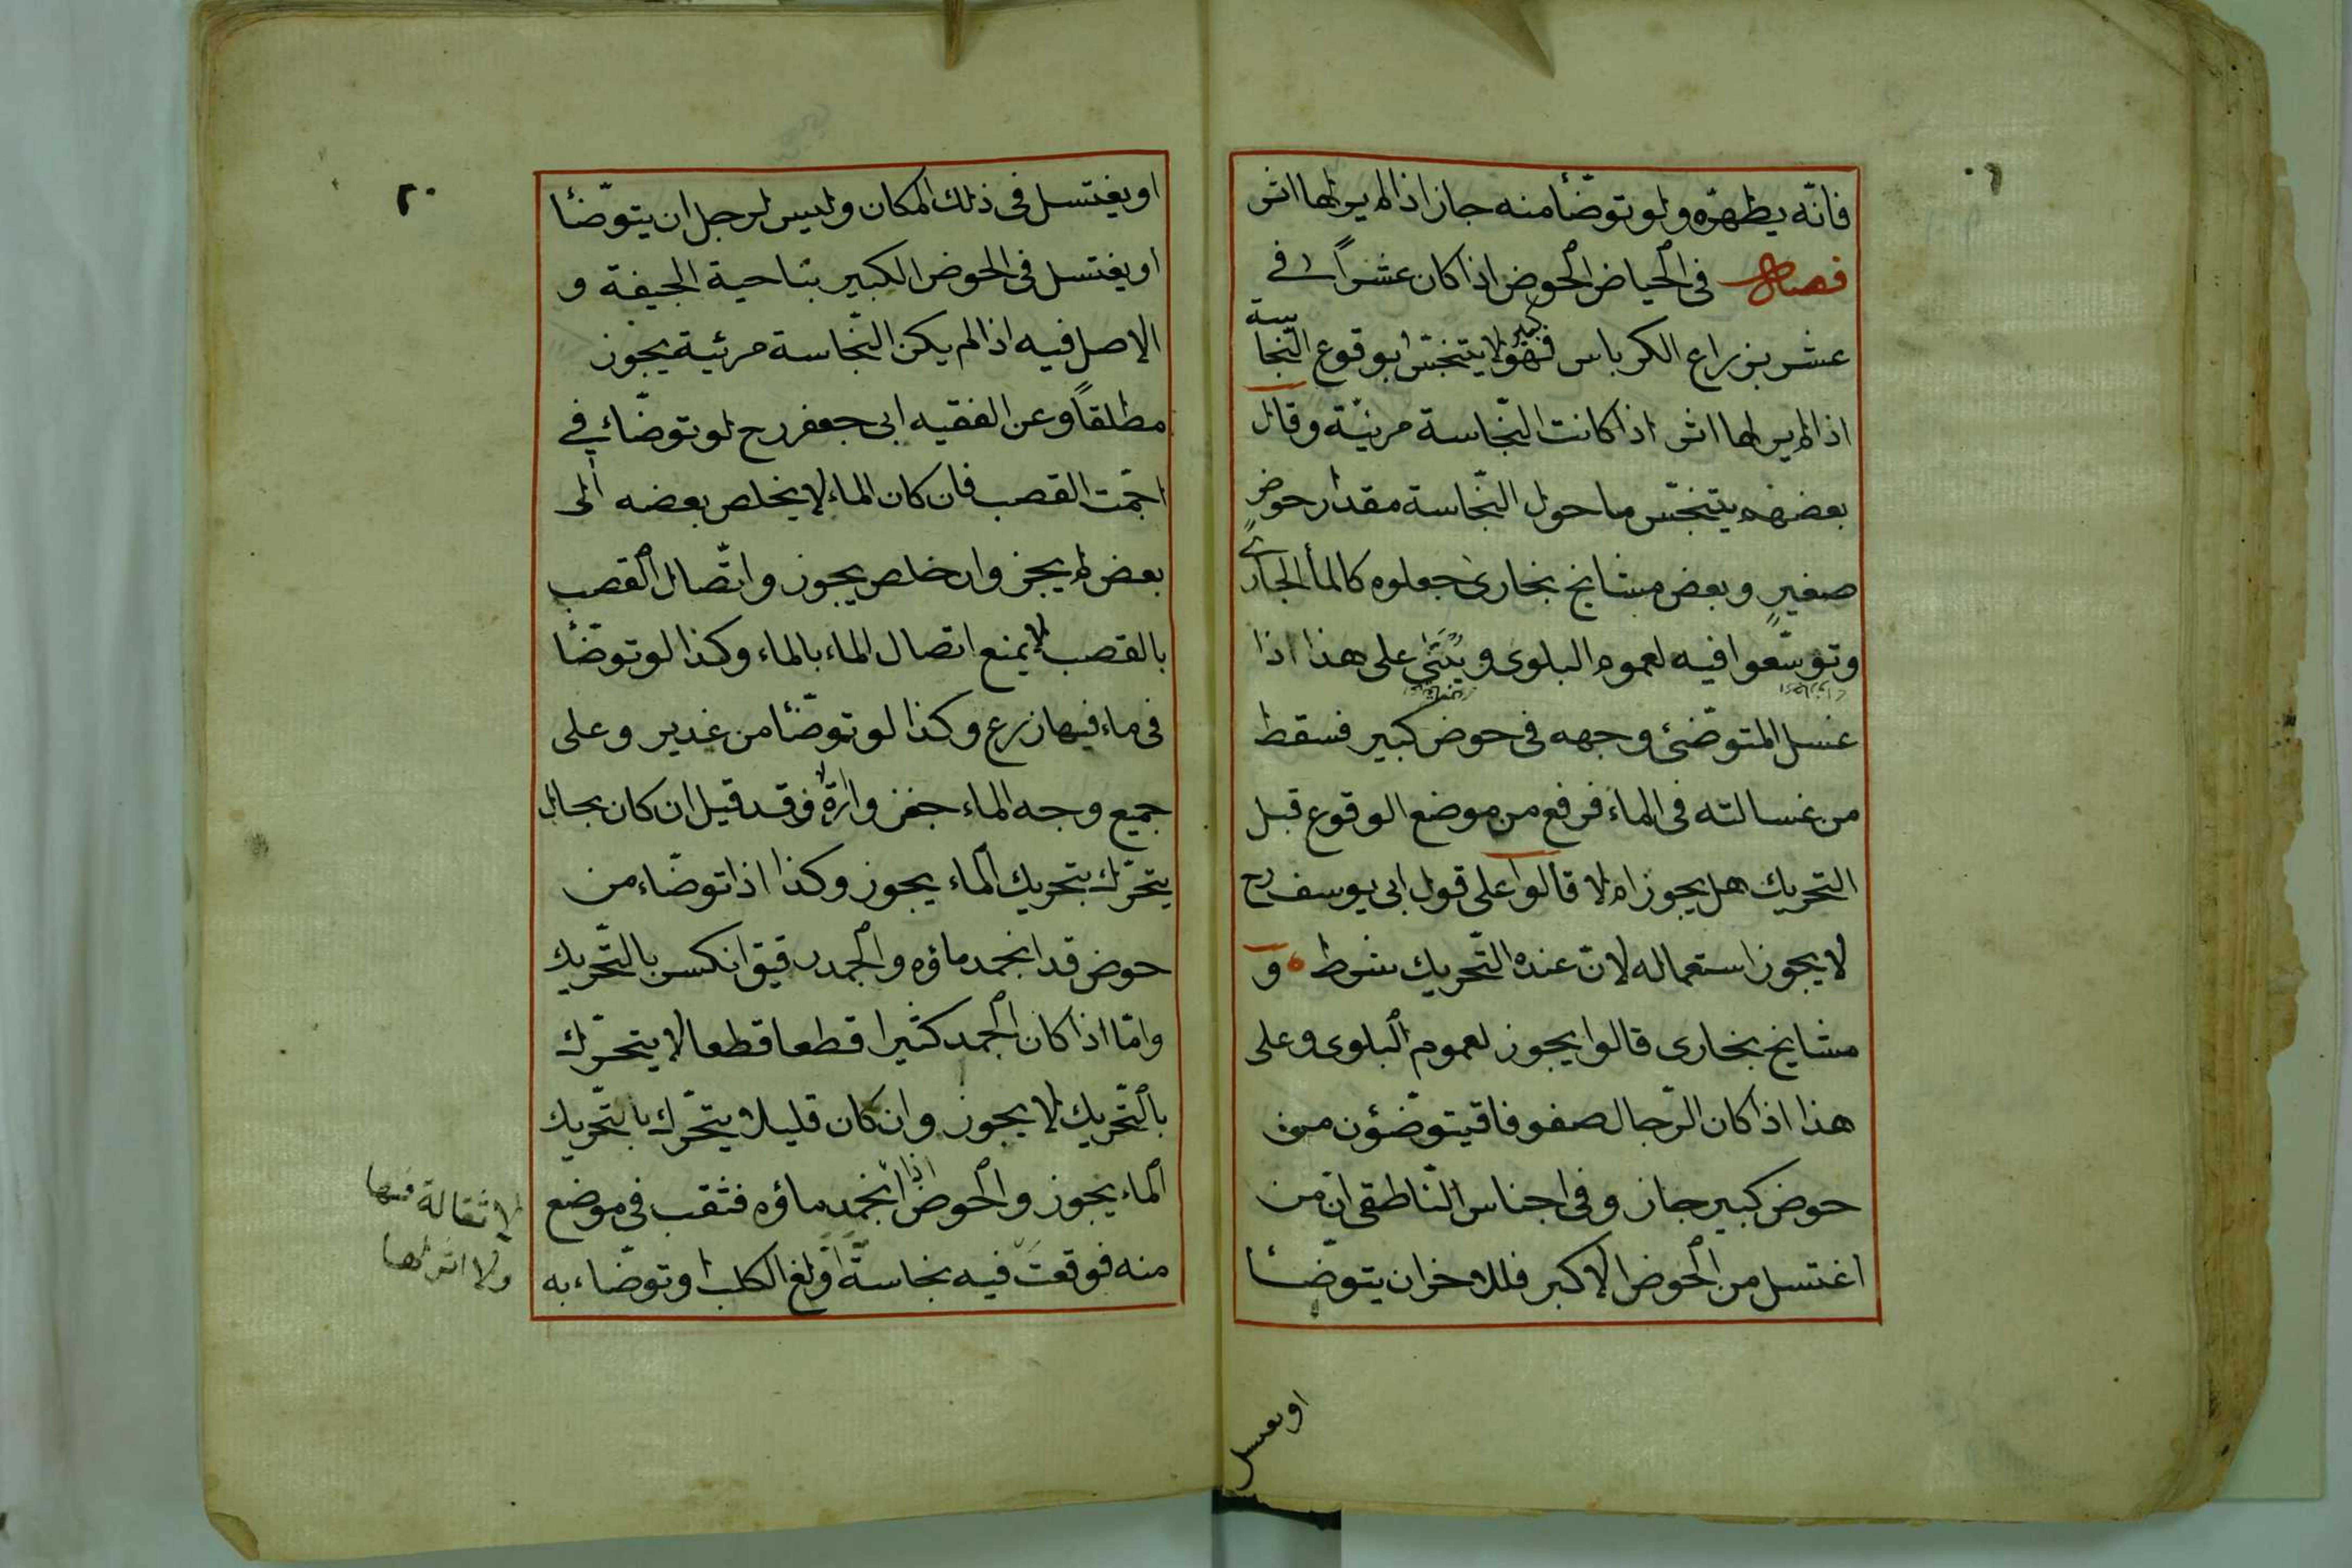 فانّه يطهّره ولو توضّأ منه جاز اذا لم ير لها اثر
فصل في الحياض الحوض اذا كان عشراً في
عشر بزراع الكرباس فهو كبير لا يتنجّس بوقوع النّجاسة
اذا لم ير لها اثر اذا كانت النّجاسة مرئيّة وقال
بعضهم يتنجّس ما حول النّجاسة مقدار حوض
صغير وبعض مشايخ بخارى جعلوه كالمأ الجاري
وتوسّعوا فيه لعموم البلوى ويبتنى على هذا اذا
غسل المتوضّئ وجهه في حوض كبير فسقط
من غسالته في الماء فرفع من موضع الوقوع قبل
التحريك هل يجوز ام لا قالوا على قول ابي يوسف رح
لا يجوز استعماله لانّ عنده التّحريك شرط و
مشايخ بخارى قالوا يجوز لعموم البلوى وعلى
هذا اذا كان الرّجال صفوفا قيتوضّؤن من
حوض كبير جاز وفي اجناس النّاطقي انّ من
اغتسل من الحوض الاكبر فللاخر ان يتوضّأ
او يغتسل
٢٠
او يغتسل في ذلك المكان وليس لرجل ان يتوضّأ
او يغتسل في الحوض الكبير بناحية الجيفة و
الاصل فيه اذا لم يكن النّجاسة مرئية يجوز
مطلقاً وعن الفقيه ابي جعفر رح لو توضّاء في
اجمّت القصب فان كان الماء لا يخلص بعضه الى
بعض لم يجز وان خلص يجوز واتّصال القصب
بالقصب لا يمنع اتصال الماء بالماء وكذا لو توضّأ
في ماء فيها زرع وكذا لو توضّأ من غدير وعلى
جميع وجه الماء جغز وارة فقد قيل ان كان بحال
يتحرّك بتحريك الماء يجوز وكذا اذا توضّاء من
حوض قد انجمد ماؤه والجمد رقيق انكسر بالتّحريك
وامّا اذا كان الجمد كثيرا قطعا قطعا لا يتحرّك
بالتّحريك لا يجوز وان كان قليلا يتحّرك بالتّحريك
الماء يجوز والحوض اذا انجمد ماؤه فثقب في موضع
منه فوقعت فيه نجاسة او ولغ الكلب او توضّاء به
ولا اثر لها